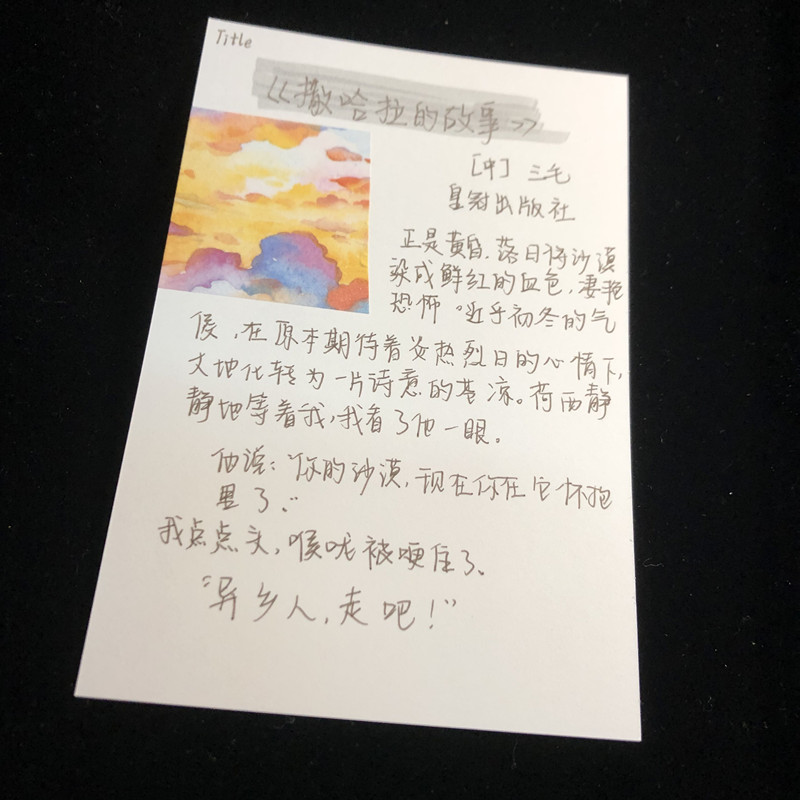 Title
《撒哈拉的故事》
[中] 三毛
皇冠出版社
正是黄昏,落日将沙漠
染成鲜红的血色,凄艳
恐怖。近乎初冬的气
候,在原本期待着炎热烈日的心情下,
大地化转为一片诗意的苍凉。荷西静
静地等着我,我看了他一眼。
他说:“你的沙漠,现在你在它怀抱
里了。”
我点点头,喉咙被哽住了。
“异乡人,走吧!”